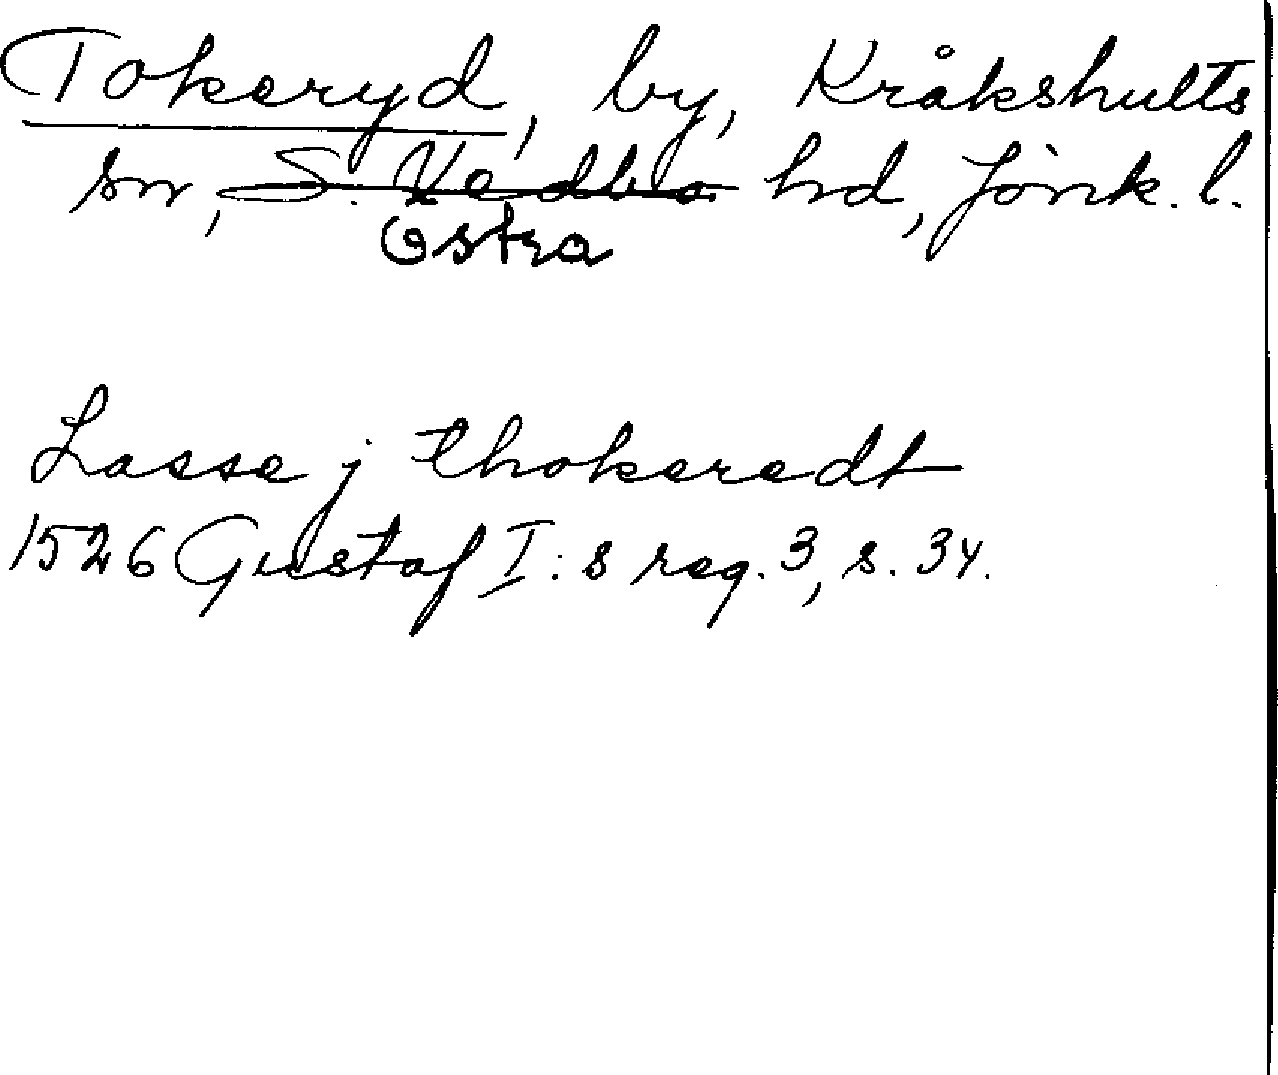 Tokeryd, by, Kråkshults
sn, S. Vedbo hd, Jönk. l.
Östra
Lasse j thokeredt
1526 Gustaf I:s reg. 3, s. 34.